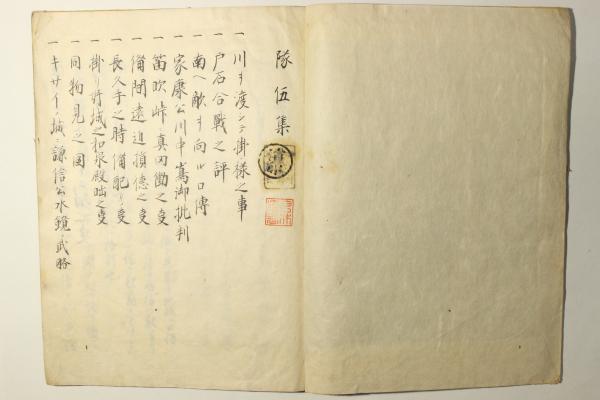 隊伍集
一 川ヲ渡シテ掛様之事
一 戸石合戦之評
一 南ヘ敵ヲ向ル口傳
一 家康公川中嶌御批判
一 笛吹峠真田働之叓
一 備間遠近損徳之叓
一 長久手之時備配リ叓
一 掛リ狩城之和泉殿昢之叓
一 同物見之図
一 キサイノ城ニ謙信公水鏡ノ武略